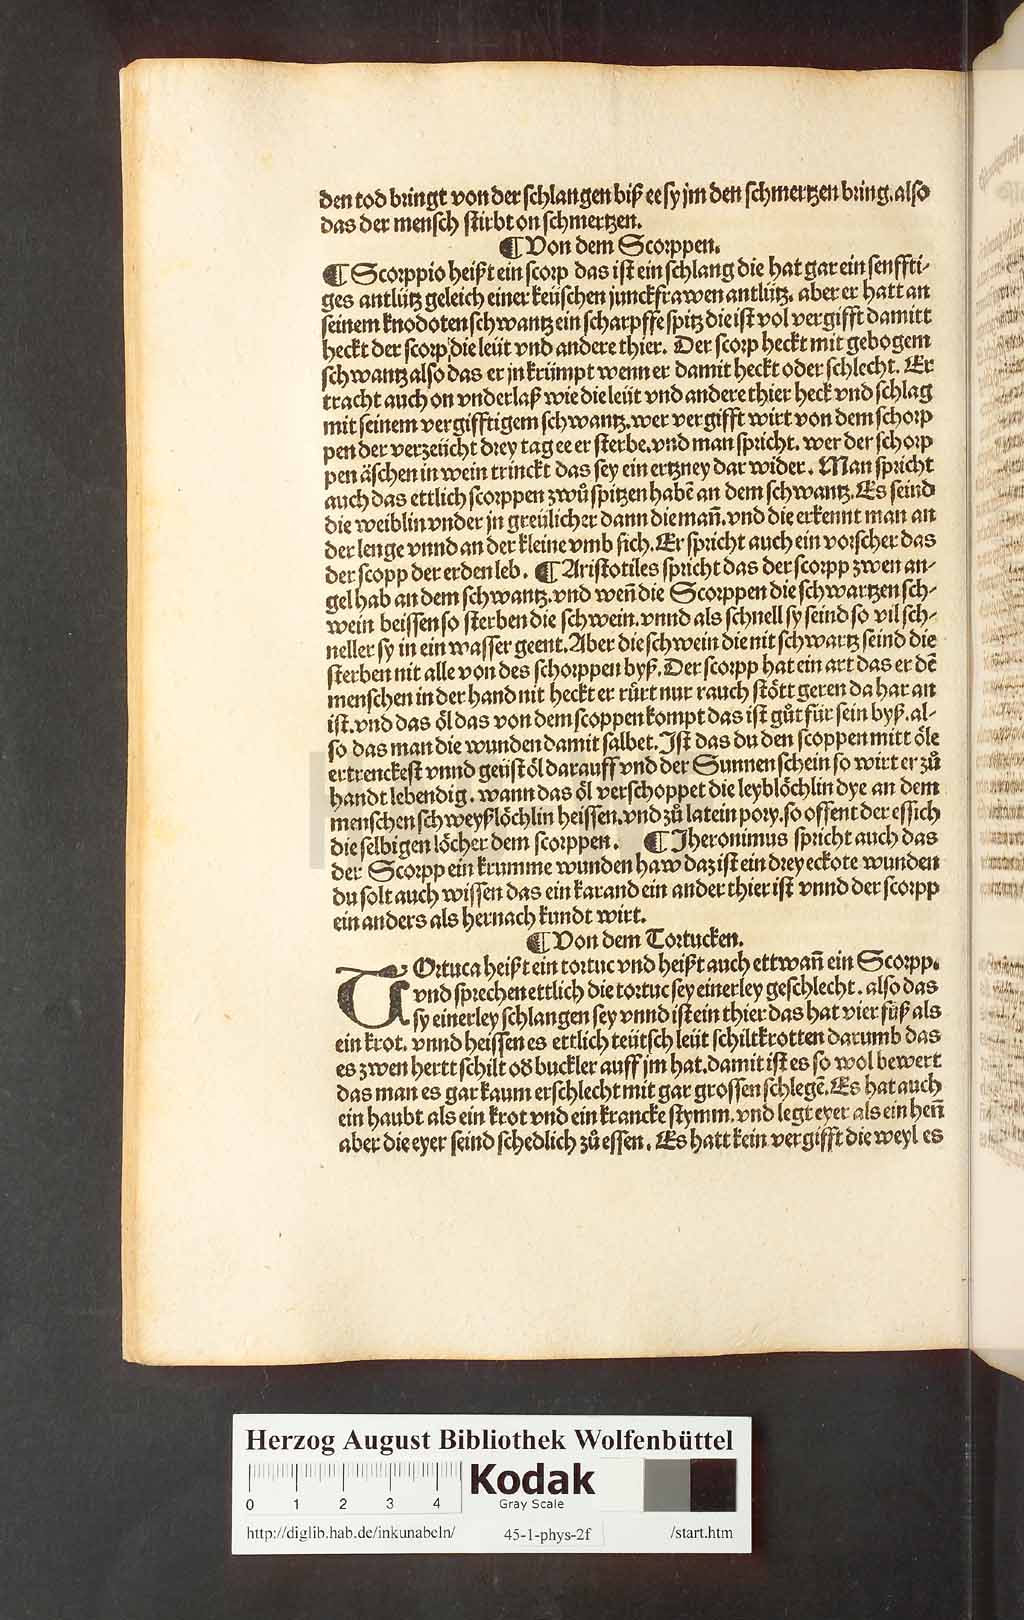 den tod bringt von der schlangen biß ee sy jm den schmertzen bring. also
das der mensch stirbt on schmertzen.
¶ Von dem Scorppen.
¶ Scorppio heißt ein scorp das ist ein schlang die hat gar ein senffti-
ges antlütz geleich einer keüschen junckfrawen antlütz. aber er hatt an
seinem knodoten schwantz ein scharpffe spitz die ist vol vergifft damitt
heckt der scorp die leüt vnd andere thier. Der scorp heckt mit gebogem
schwantz also das er jn krümpt wenn er damit heckt oder schlecht. Er
tracht auch on vnderlaß wie die leüt vnd andere thier heck vnd schlag
mit seinem vergifftigem schwantz. wer vergifft wirt von dem schorp
pen der verzeücht drey tag ee er sterbe. vnd man spricht. wer der schorp
pen äschen in wein trinckt das sey ein ertzney dar wider. Man spricht
auch das ettlich scorppen zwů spitzen habē an dem schwantz. Es seind
die weiblin vnder jn greülicher dann die mañ. vnd die erkennt man an
der lenge vnnd an der kleine vmb sich. Er spricht auch ein vorscher das
der scopp der erden leb. ¶ Aristotiles spricht das der scorpp zwen an-
gel hab an dem schwantz. vnd weñ die Scorppen die schwartzen sch-
wein beissen so sterben die schwein. vnnd als schnell sy seind so vil sch-
neller sy in ein wasser geent. Aber die schwein die nit schwartz seind die
sterben nit alle von des schorppen byß. Der scorpp hat ein art das er dē
menschen in der hand nit heckt er rürt nur rauch stött geren da har an
ist. vnd das öl das von dem scoppen kompt das ist gůt für sein byß. al-
so das man die wunden damit salbet. Ist das du den scoppen mitt öle
ertrenckest vnnd geüst öl darauff vnd der Sunnen schein so wirt er zů
handt lebendig. wann das öl verschoppet die leyblöchlin dye an dem
menschen schweyßlöchlin heissen. vnd zů latein pory. so offent der essich
die selbigen löcher dem scorppen. ¶ Jheronimus spricht auch das
der Scorpp ein krumme wunden haw daz ist ein dreyeckote wunden
du solt auch wissen das ein karand ein ander thier ist vnnd der scorpp
ein anders als hernach kundt wirt.
¶ Von dem Tortucken.
TOrtuca heißt ein tortuc vnd heißt auch ettwañ ein Scorpp.
vnd sprechen ettlich die tortuc sey einerley geschlecht. also das
sy einerley schlangen sey vnnd ist ein thier das hat vier füß als
ein krot. vnnd heissen es ettlich teütsch leüt schiltkrotten darumb das
es zwen hertt schilt oď buckler auff jm hat. damit ist es so wol bewert
das man es gar kaum erschlecht mit gar grossen schlegē. Es hat auch
ein haubt als ein krot vnd ein krancke stymm. vnd legt eyer als ein heñ
aber die eyer seind schedlich zů essen. Es hatt kein vergifft die weyl es
Herzog August Bibliothek Wolfenbüttel
0 1 2 3 4 Kodak
Gray Scale
http://diglib.hab.de/inkunabeln/ 45-1-phys-2f /start.htm